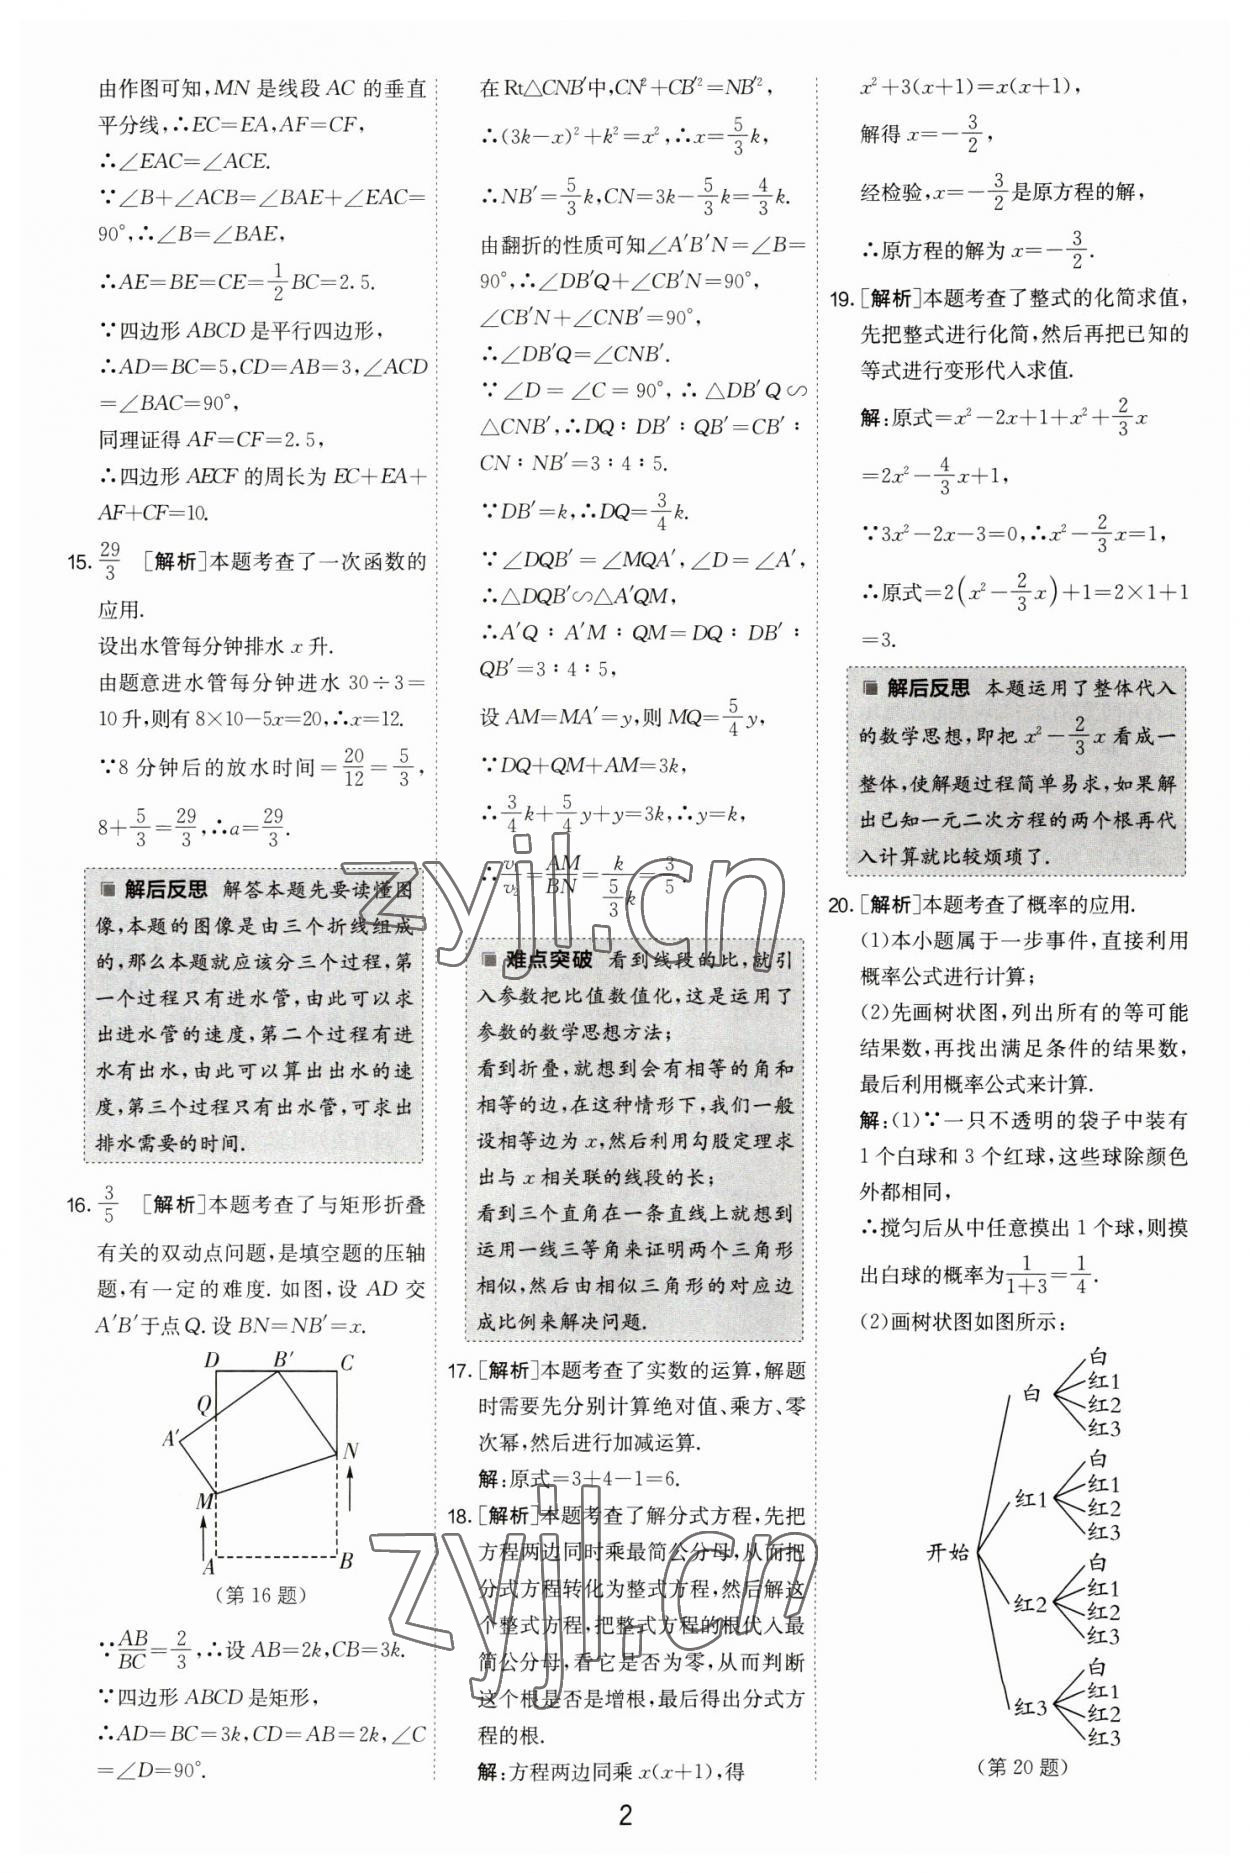 由作图可知,MN 是线段 AC 的垂直
平分线,∴EC=EA,AF=CF,
∴∠EAC=∠ACE.
∵∠B+∠ACB=∠BAE+∠EAC=
90°,∴∠B=∠BAE,
∴AE=BE=CE=1/2 BC=2.5.
∵四边形 ABCD 是平行四边形,
∴AD=BC=5,CD=AB=3,∠ACD
=∠BAC=90°,
同理证得 AF=CF=2.5,
∴四边形 AECF 的周长为 EC+EA+
AF+CF=10.
15. 29/3 [解析]本题考查了一次函数的
应用.
设出水管每分钟排水 x 升.
由题意进水管每分钟进水 30÷3=
10 升,则有 8×10-5x=20,∴x=12.
∵8 分钟后的放水时间=20/12=5/3,
8+5/3=29/3,∴a=29/3.
解后反思 解答本题先要读懂图
像,本题的图像是由三个折线组成
的,那么本题就应该分三个过程,第
一个过程只有进水管,由此可以求
出进水管的速度,第二个过程有进
水有出水,由此可以算出出水的速
度,第三个过程只有出水管,可求出
排水需要的时间.
16. 3/5 [解析]本题考查了与矩形折叠
有关的双动点问题,是填空题的压轴
题,有一定的难度. 如图,设 AD 交
A′B′于点 Q. 设 BN=NB′=x.
D B′ C
Q
A′
N
M
A B
(第 16 题)
∵AB/BC=2/3,∴设 AB=2k,CB=3k.
∵四边形 ABCD 是矩形,
∴AD=BC=3k,CD=AB=2k,∠C
=∠D=90°.
在 Rt△CNB′中,CN²+CB′²=NB′²,
∴(3k-x)²+k²=x²,∴x=5/3 k,
∴NB′=5/3 k,CN=3k-5/3 k=4/3 k.
由翻折的性质可知∠A′B′N=∠B=
90°,∴∠DB′Q+∠CB′N=90°,
∠CB′N+∠CNB′=90°,
∴∠DB′Q=∠CNB′.
∵∠D=∠C=90°,∴△DB′Q∽
△CNB′,∴DQ∶DB′∶QB′=CB′∶
CN∶NB′=3∶4∶5.
∵DB′=k,∴DQ=3/4 k.
∵∠DQB′=∠MQA′,∠D=∠A′,
∴△DQB′∽△A′QM,
∴A′Q∶A′M∶QM=DQ∶DB′∶
QB′=3∶4∶5,
设 AM=MA′=y,则 MQ=5/4 y,
∵DQ+QM+AM=3k,
∴3/4 k+5/4 y+y=3k,∴y=k,
∴v₁/v₂=AM/BN=k/(5/3 k)=3/5.
难点突破 看到线段的比,就引
入参数把比值数值化,这是运用了
参数的数学思想方法;
看到折叠,就想到会有相等的角和
相等的边,在这种情形下,我们一般
设相等边为 x,然后利用勾股定理求
出与 x 相关联的线段的长;
看到三个直角在一条直线上就想到
运用一线三等角来证明两个三角形
相似,然后由相似三角形的对应边
成比例来解决问题.
17. [解析]本题考查了实数的运算,解题
时需要先分别计算绝对值、乘方、零
次幂,然后进行加减运算.
解:原式=3+4-1=6.
18. [解析]本题考查了解分式方程,先把
方程两边同时乘最简公分母,从而把
分式方程转化为整式方程,然后解这
个整式方程,把整式方程的根代入最
简公分母,看它是否为零,从而判断
这个根是否是增根,最后得出分式方
程的根.
解:方程两边同乘 x(x+1),得
x²+3(x+1)=x(x+1),
解得 x=-3/2,
经检验,x=-3/2是原方程的解,
∴原方程的解为 x=-3/2.
19. [解析]本题考查了整式的化简求值,
先把整式进行化简,然后再把已知的
等式进行变形代入求值.
解:原式=x²-2x+1+x²+2/3 x
=2x²-4/3 x+1,
∵3x²-2x-3=0,∴x²-2/3 x=1,
∴原式=2(x²-2/3 x)+1=2×1+1
=3.
解后反思 本题运用了整体代入
的数学思想,即把 x²-2/3 x 看成一
整体,使解题过程简单易求,如果解
出已知一元二次方程的两个根再代
入计算就比较烦琐了.
20. [解析]本题考查了概率的应用.
(1)本小题属于一步事件,直接利用
概率公式进行计算;
(2)先画树状图,列出所有的等可能
结果数,再找出满足条件的结果数,
最后利用概率公式来计算.
解:(1)∵一只不透明的袋子中装有
1 个白球和 3 个红球,这些球除颜色
外都相同,
∴搅匀后从中任意摸出 1 个球,则摸
出白球的概率为1/(1+3)=1/4.
(2)画树状图如图所示:
开始
白
白
红1
红2
红3
红1
白
红1
红2
红3
红2
白
红1
红2
红3
红3
白
红1
红2
红3
(第 20 题)
2
zyjl.cn
zyjl.cn